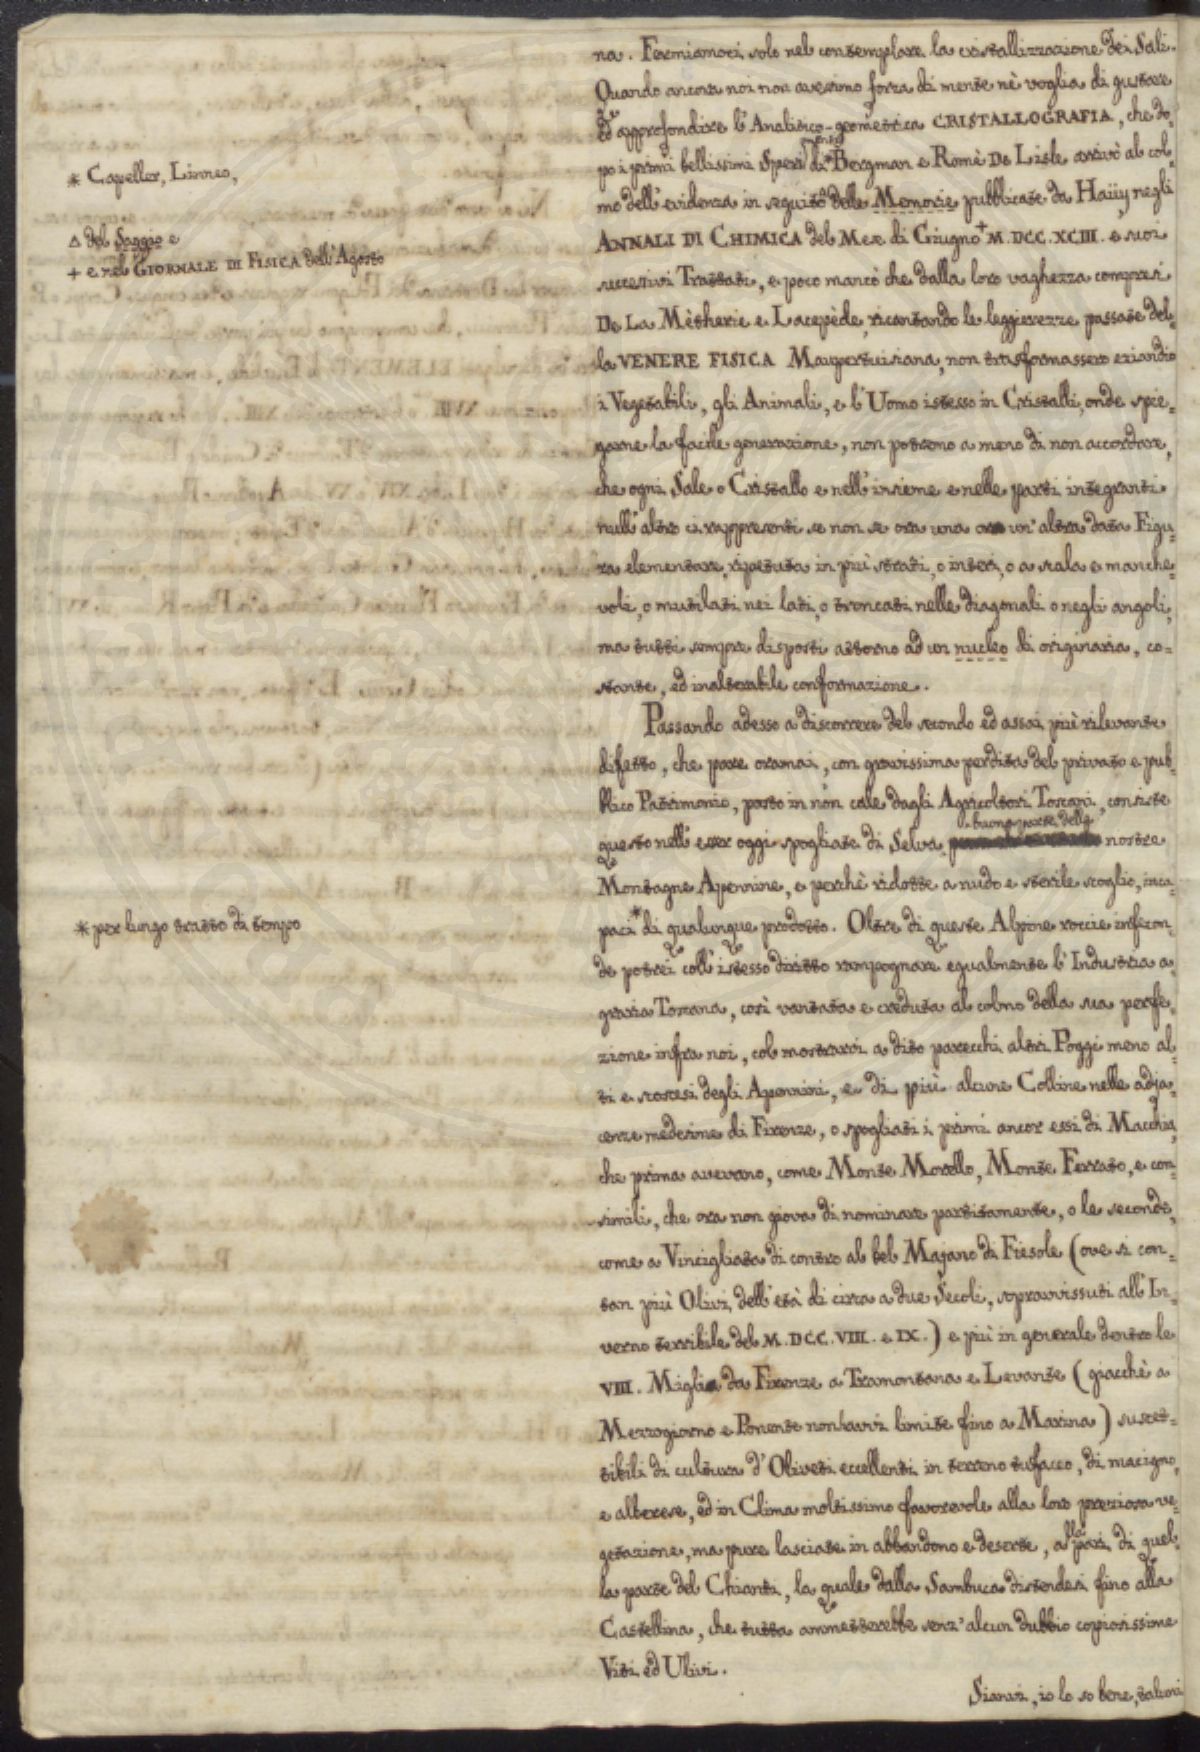 na. Fermiamoci solo nel contemplare la cristallizzazione dei Sali.
Quando ancora noi non avessimo forza di mente nè voglia di gustare
ed approfondire l'Analitico-geometrica CRISTALLOGRAFIA, che do-
po i primi bellissimi Sperimenti di* Bergman e Romè De Lisle arrivò al col-
* Capeller, Linneo,
mo dell'evidenza in seguito delle Memorie pubblicate da Haüy negli
Δ del Saggio e
ANNALI DI CHIMICA del Mese di Giugno + M.DCC.XCIII. e suoi
+ e nel GIORNALE DI FISICA dell'Agosto
successivi Trattati, e poco mancò che dalla loro vaghezza compresi
De La Mètherie e Lacepède, ricantando le leggierezze passate del-
la VENERE FISICA Maupertuisiana, non trasformassero eziandio
i Vegetabili, gli Animali, e l'Uomo istesso in Cristalli, onde spie-
garne la facile generazione, non potremo a meno di non accordare,
che ogni Sale o Cristallo e nell'insieme e nelle parti integranti
null'altro ci rappresenti se non se ora una ora un'altra data Figu-
ra elementare, ripetuta in più strati, o interi, o a scala e manche-
voli, o mutilati nei lati, o troncati nelle diagonali o negli angoli,
ma tutti sempre disposti attorno ad un nucleo di originaria, co-
stante, ed inalterabile conformazione.
Passando adesso a discorrere del secondo ed assai più rilevante
difetto, che pare oramai, con gravissima perdita del privato e pub-
blico Patrimonio, posto in non cale dagli Agricoltori Toscani, consiste
questo nell'esser oggi spogliate di Selva buona parte delle nostre
Montagne Apennine, e perchè ridotte a nudo e sterile scoglio, inca-
paci* di qualunque prodotto. Oltre di queste Alpine roccie infecon-
* per lungo tratto di tempo
de potrei coll'istesso diritto rampognare egualmente l'Industria a-
graria Toscana, così vantata e creduta al colmo della sua perfe-
zione infra noi, col mostrarvi a dito parecchi altri Poggi meno al-
ti e scoscesi degli Apennini, e di più alcune Colline nelle adja-
cenze medesime di Firenze, o spogliati i primi ancor essi di Macchia,
che prima avevano, come Monte Morello, Monte Ferrato, e con-
simili, che ora non giova di nominare partitamente, o le seconde,
come a Vincigliata di contro al bel Majano di Fiesole (ove si con-
tan più Olivi dell'età di circa a due Secoli, sopravvissuti all'In-
verno terribile del M.DCC.VIII. e IX.) e più in generale dentro le
VIII. Miglia da Firenze a Tramontana e Levante (giacchè a
Mezzogiorno e Ponente non havvi limite fino a Marina) suscet-
tibili di cultura d'Oliveti eccellenti in terreno tufaceo, di macigno,
e alberese, ed in Clima moltissimo favorevole alla loro preziosa ve-
getazione, ma pure lasciate in abbandono e deserte, alla pari di quel-
la parte del Chianti, la quale dalla Sambuca distendesi fino alla
Castellina, che tutta ammetterebbe senz'alcun dubbio copiosissime
Viti ed Ulivi.
Sianvi, io lo so bene, talvni